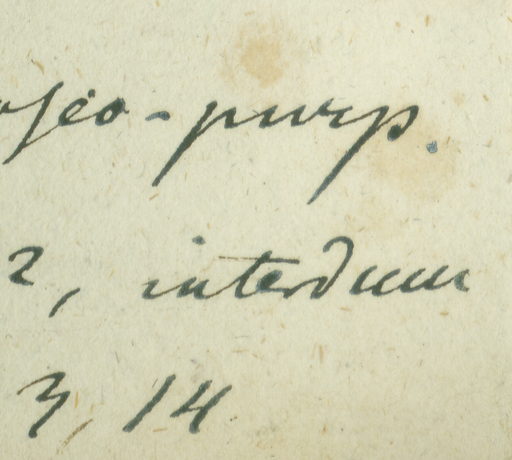 oseo-purp.
2, interdum
3, 14